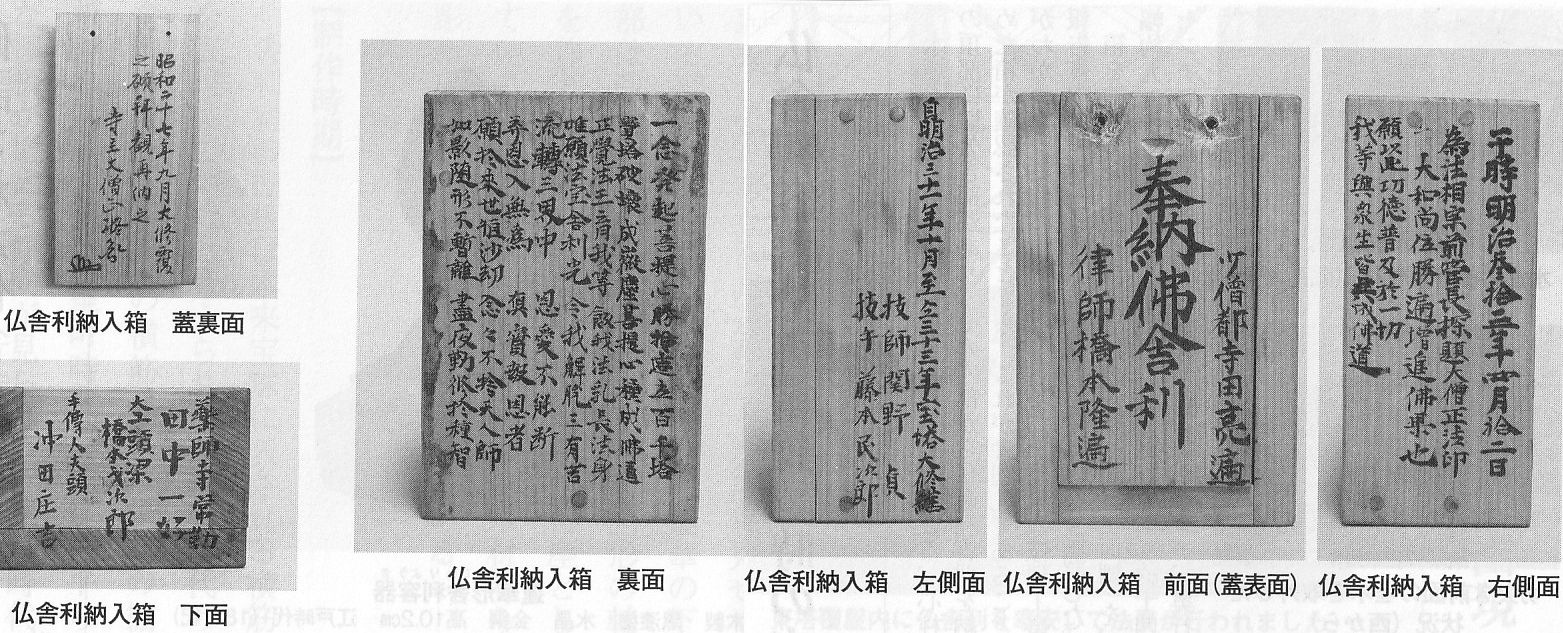 于時明治參拾三年四月拾二日
為法相宗前管長 大僧正法印
大和尚位勝遍増進佛果也
願以此功徳普及於一切
我等與衆生皆共成佛道
仏舎利納入箱　右側面
少僧都寺田亮遍
奉納佛舎利
律師橋本隆遍
仏舎利納入箱　前面（蓋表面）
自明治三十一年十月至仝三十三年宝塔大修繕
技師関野　貞
技手　藤本民次郎
仏舎利納入箱　左側面
一念發起菩提心　勝於造立百千塔
寶塔破壊成微塵　菩提心種成佛道
正覺法王育我等　飲我法乳長法身
唯願法空舎利光　令我解脱三有苦
流轉三界中　恩愛不能断
棄恩入無為　真實報恩者
願於来世恒沙劫　念々不捨天人師
如影随形不暫離　晝夜勤修於種智
仏舎利納入箱　裏面
昭和二十七年九月大修覆
之砌拝観再納之
寺主大僧正凝胤
仏舎利納入箱　蓋裏面
薬師寺常勤
田中一
大工頭梁
橋本 次郎
手傳人夫頭
沖田庄吉
仏舎利納入箱　下面